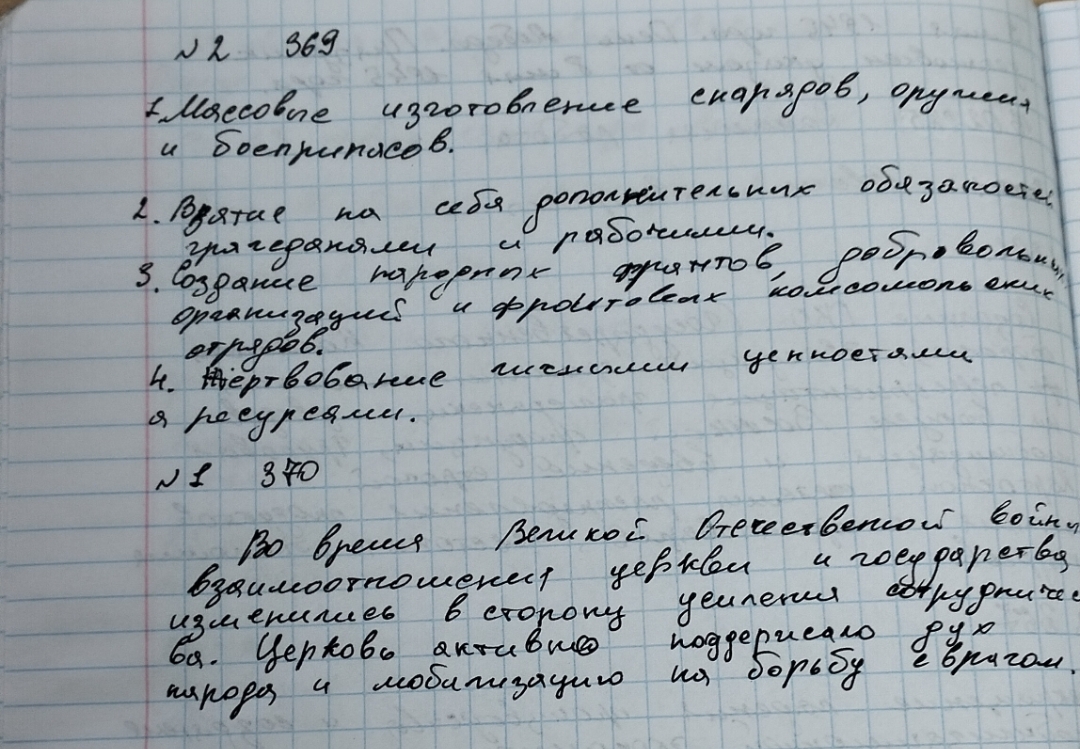 №2 369
1. Массовые изготовление снарядов, оружия
и боеприпасов.
2. Взятие на себя дополнительных обязаностей
гражданами и рабочими.
3. Создание народных франтов, добровольных
организаций и фронтовых комсомольских
отрядов.
4. Жертвование личными ценностями
и ресурсами.
№1 370
Во время Великой Отечественной войны
взаимоотношения церкви и государства
изменились в сторону усиления сотрудничес
ва. Церковь активно поддерисало дух
народа и мобилизацию на борьбу с врагом.